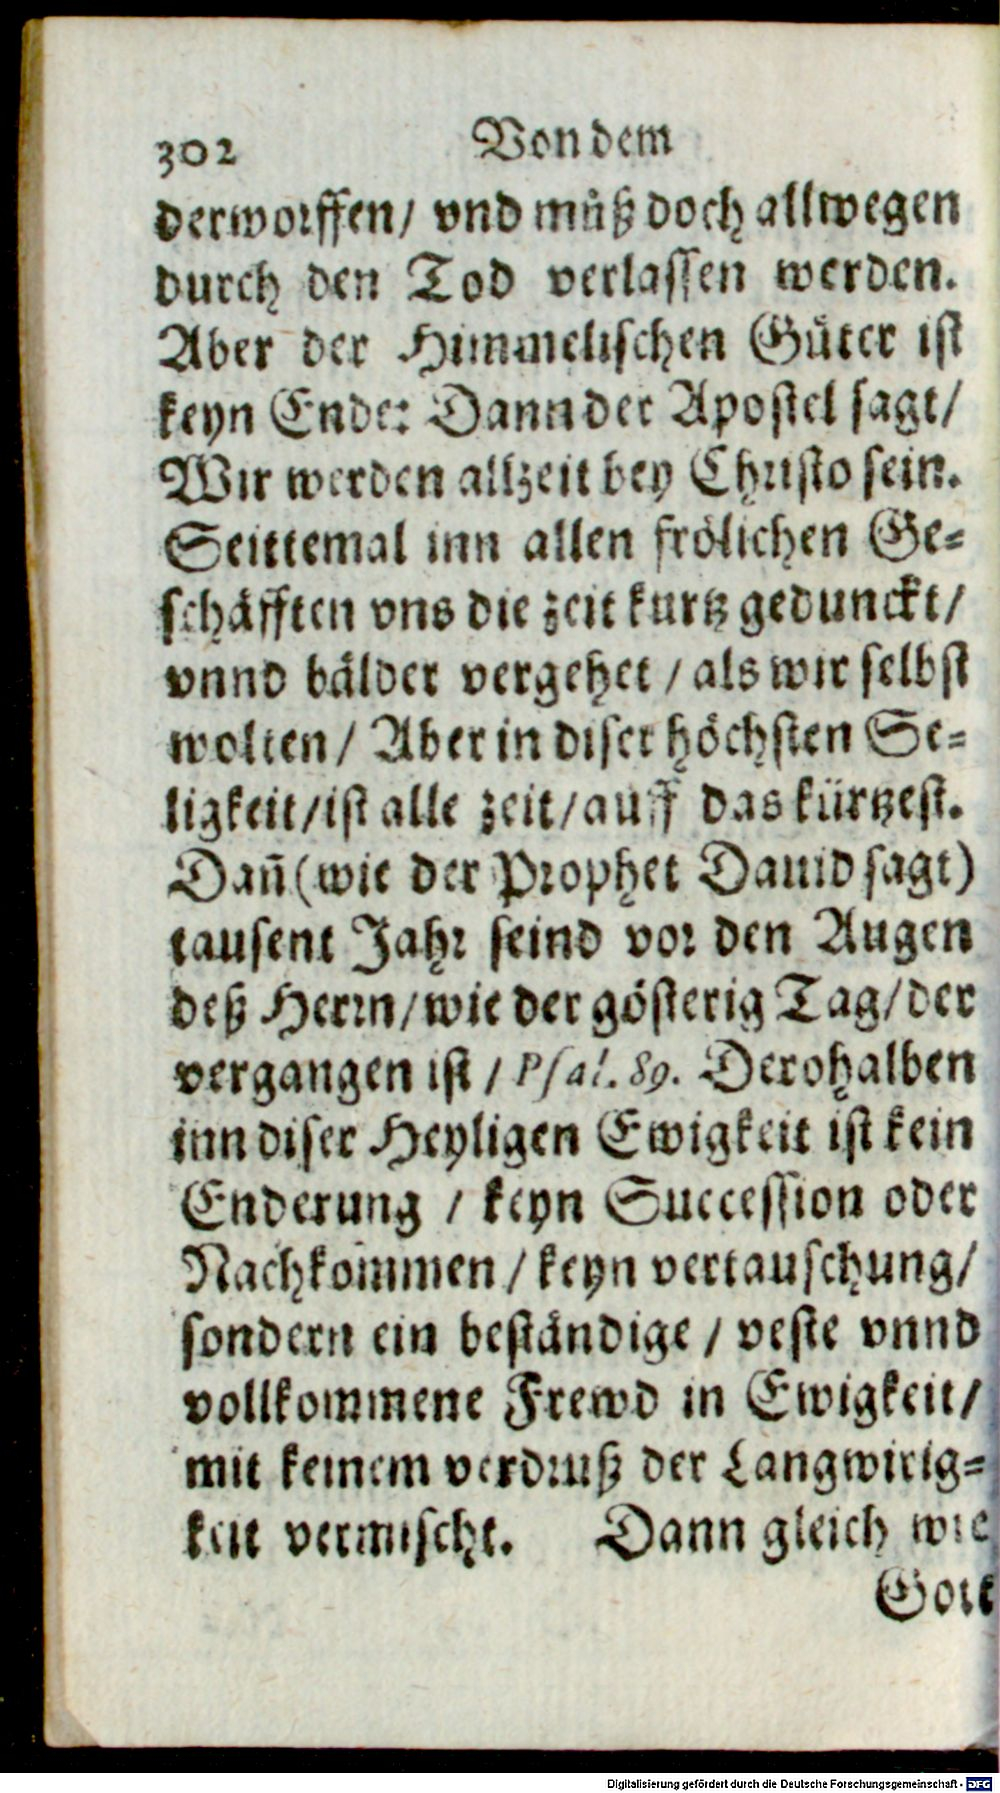 302 Von dem
derworffen/ vnd muͤß doch allwegen
durch den Tod verlassen werden.
Aber der Himmelischen Guͤter ist
keyn Ende: Dann der Apostel sagt/
Wir werden allzeit bey Christo sein.
Seittemal inn allen froͤlichen Ge-
schaͤfften vns die zeit kurtz gedunckt/
vnnd baͤlder vergehet / als wir selbst
wolten/ Aber in diser hoͤchsten Se-
ligkeit/ist alle zeit/auff das kuͤrtzest.
Dañ (wie der Prophet Dauid sagt)
tausent Jahr seind vor den Augen
deß Herrn/wie der goͤsterig Tag/der
vergangen ist / Psal. 89. Derohalben
inn diser Heyligen Ewigkeit ist kein
Enderung / keyn Succession oder
Nachkommen / keyn vertauschung/
sondern ein bestaͤndige / veste vnnd
vollkommene Frewd in Ewigkeit/
mit keinem verdruß der Langwirig-
keit vermischt. Dann gleich wie
Gott
Digitalisierung gefördert durch die Deutsche Forschungsgemeinschaft - DFG